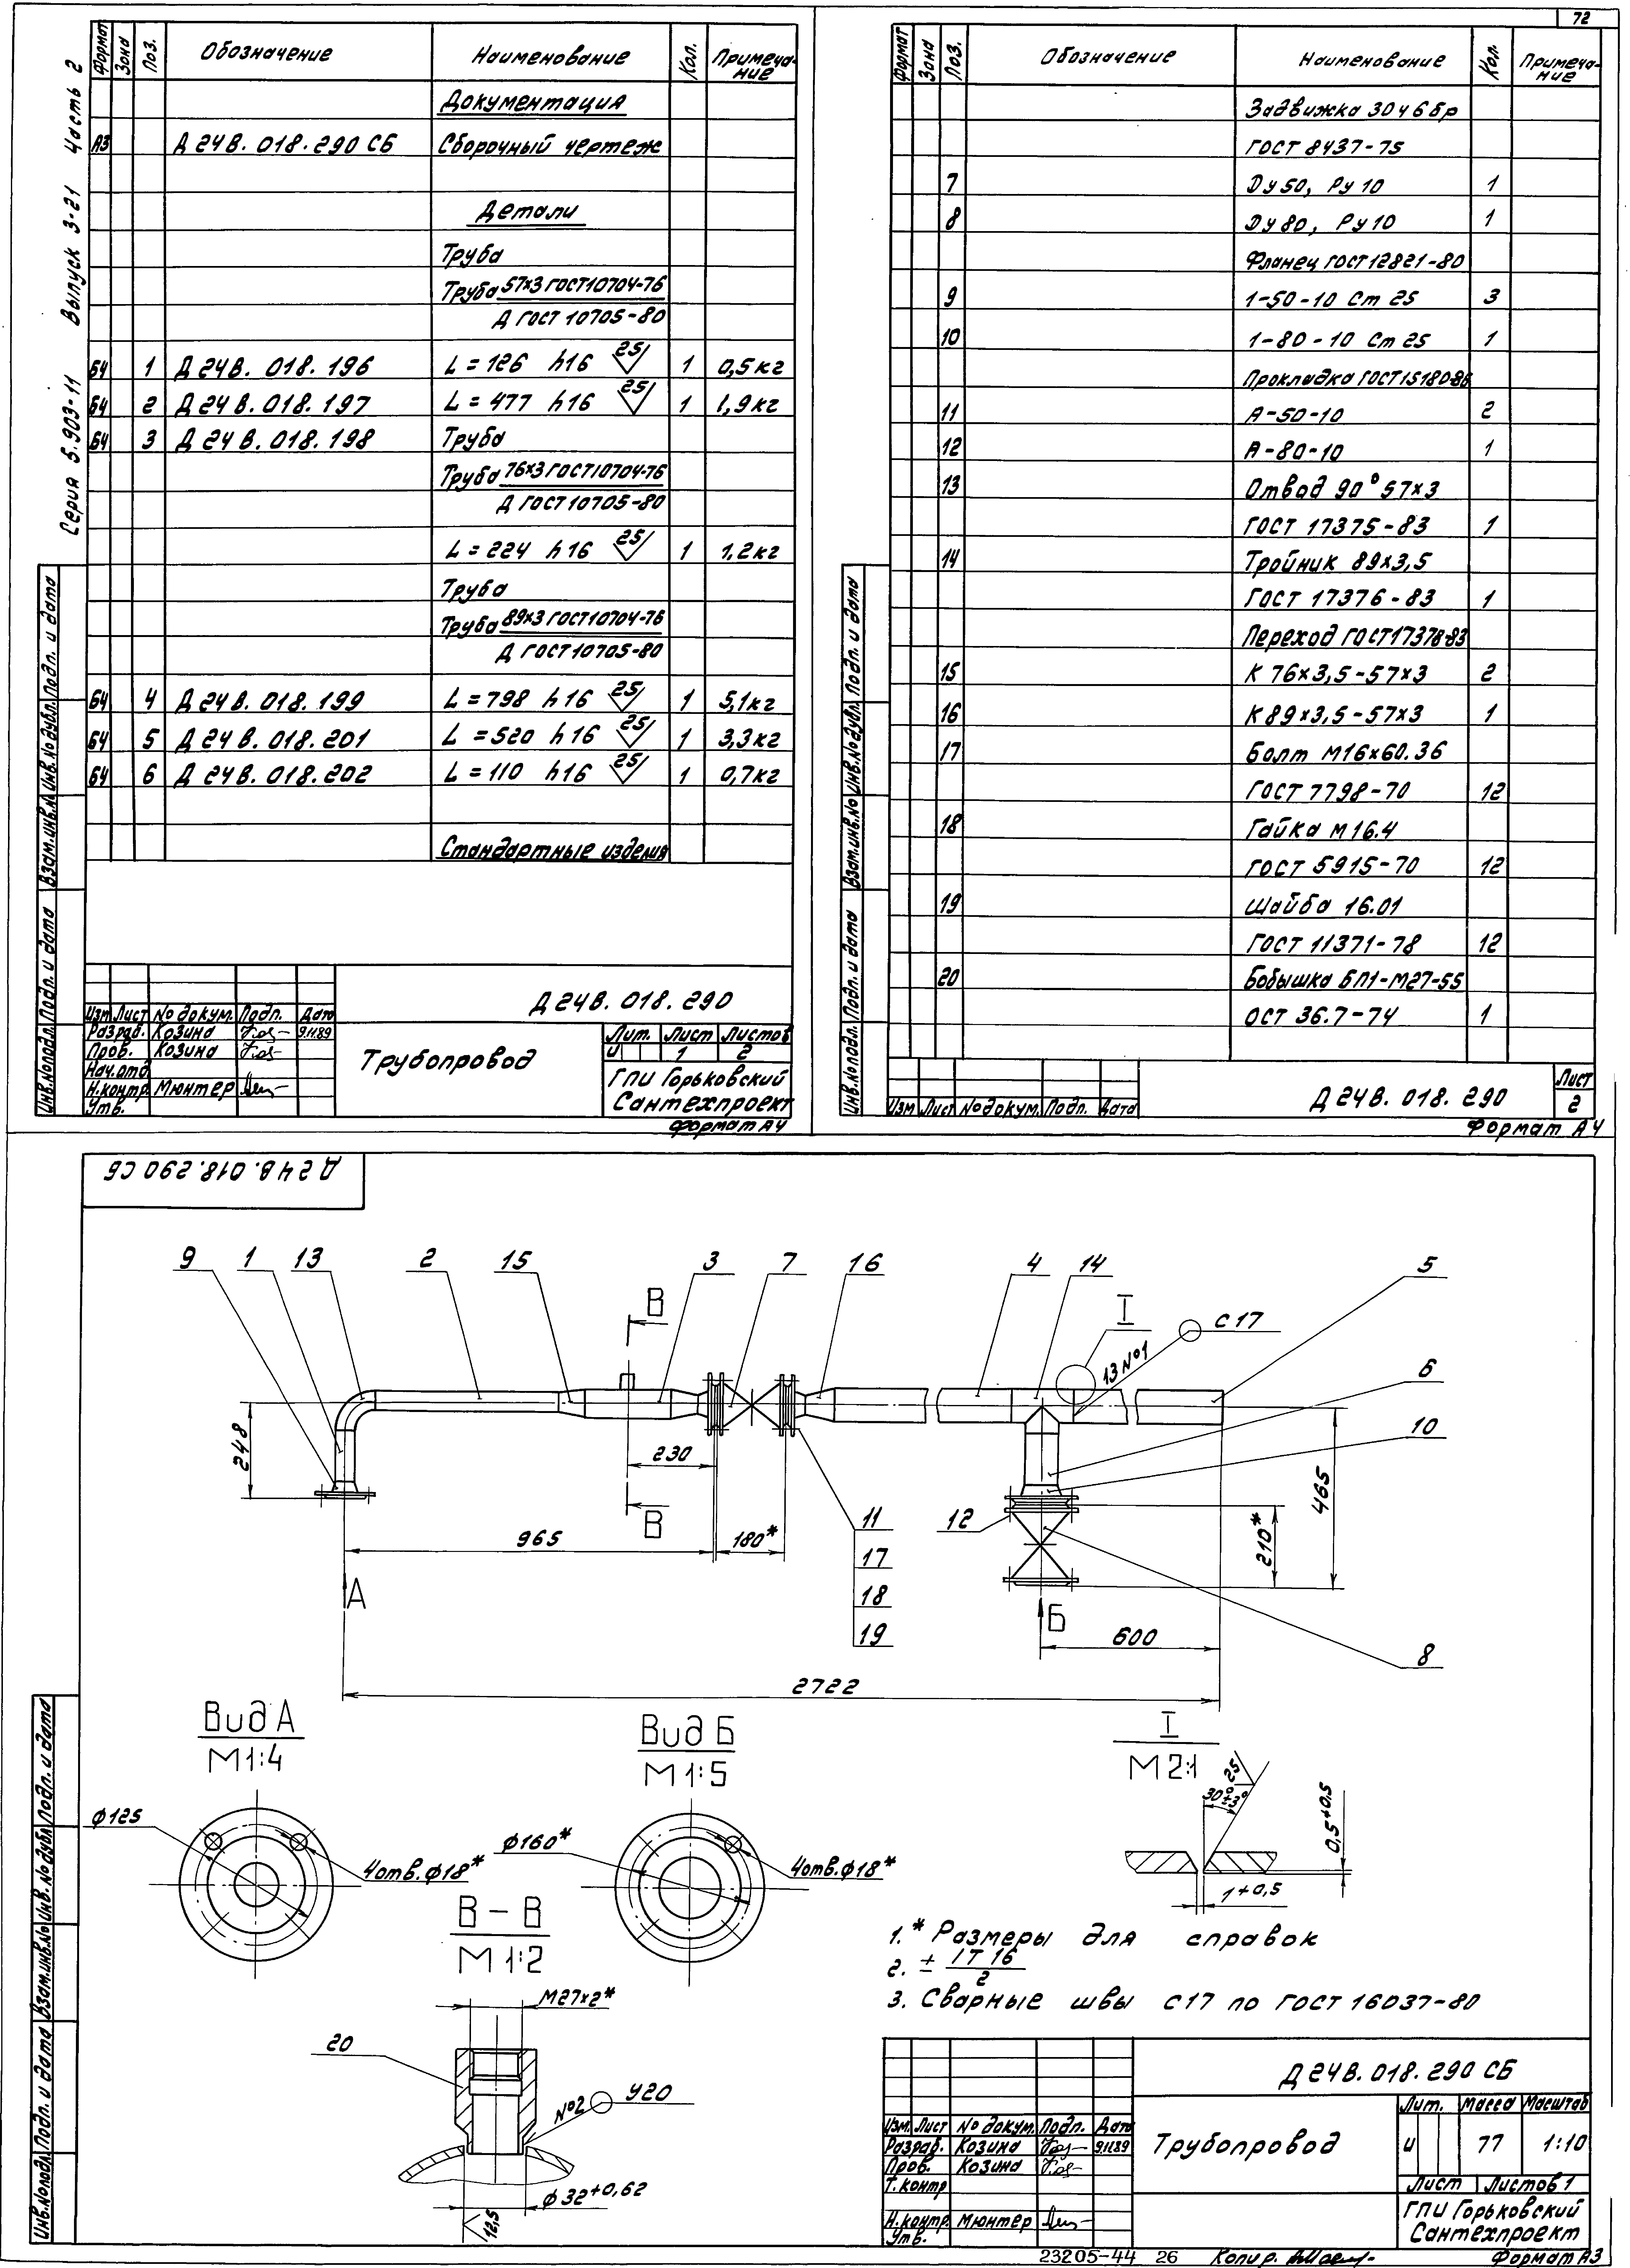 72
Серия 5.903-11 Выпуск 3-21 Часть 2
Формат Зона Поз. Обозначение Наименование Кол. Примеча-ние
Документация
А3 Д24В.018.290 СБ Сборочный чертеж
Детали
Труба
Труба 57х3 ГОСТ 10704-76
Д ГОСТ 10705-80
БЧ 1 Д24В.018.196 L=126 h16 25 1 0,5кг
БЧ 2 Д24В.018.197 L=477 h16 25 1 1,9кг
БЧ 3 Д24В.018.198 Труба
Труба 76х3 ГОСТ 10704-76
Д ГОСТ 10705-80
L=224 h16 25 1 1,2кг
Труба
Труба 89х3 ГОСТ 10704-76
Д ГОСТ 10705-80
БЧ 4 Д24В.018.199 L=798 h16 25 1 5,1кг
БЧ 5 Д24В.018.201 L=520 h16 25 1 3,3кг
БЧ 6 Д24В.018.202 L=110 h16 25 1 0,7кг
Стандартные изделия
Инв.№ подл. Подп. и дата Взам.инв.№ Инв.№ дубл. Подп. и дата
Изм Лист № докум. Подп. Дата
Разраб. Козина 9.11.89
Пров. Козина
Нач.отд
Н.контр. Мюнтер
Утв.
Д24В.018.290
Трубопровод
Лит. Лист Листов
И 1 2
ГПИ Горьковский
Сантехпроект
Формат А4
Формат Зона Поз. Обозначение Наименование Кол. Примеча-ние
Задвижка 30ч6бр
ГОСТ 8437-75
7 Ду50, Ру10 1
8 Ду80, Ру10 1
Фланец ГОСТ 12821-80
9 1-50-10 Ст 25 3
10 1-80-10 Ст 25 1
Прокладка ГОСТ 15180-86
11 А-50-10 2
12 А-80-10 1
13 Отвод 90° 57х3
ГОСТ 17375-83 1
14 Тройник 89х3,5
ГОСТ 17376-83 1
Переход ГОСТ 17378-83
15 К 76х3,5-57х3 2
16 К 89х3,5-57х3 1
17 Болт М16х60.36
ГОСТ 7798-70 12
18 Гайка М16.4
ГОСТ 5915-70 12
19 Шайба 16.01
ГОСТ 11371-78 12
20 Бобышка БП1-М27-55
ОСТ 36.7-74 1
Инв.№ подл. Подп. и дата Взам.инв.№ Инв.№ дубл. Подп. и дата
Изм Лист № докум. Подп. Дата
Д24В.018.290
Лист
2
Формат А4
Д24В.018.290 СБ
9 1 13 2 15 3 7 16 4 14 5
В
I
С17
13 №1
6
10
248
230
В
965
180*
11
17
18
19
12
210*
465
А
Б
600
8
2722
Вид А
М1:4
ф125
4отв.ф18*
Вид Б
М1:5
ф160*
4отв.ф18*
I
М2:1
25
30°±3°
0,5+0,5
1+0,5
В-В
М1:2
М27х2*
20
№2 У20
ф32+0,62
12,5
1.* Размеры для справок
2. ± IT16/2
3. Сварные швы С17 по ГОСТ 16037-80
Инв.№ подл. Подп. и дата Взам.инв.№ Инв.№ дубл. Подп. и дата
Изм. Лист № докум. Подп. Дата
Разраб. Козина 9.11.89
Пров. Козина
Т.контр
Н.контр. Мюнтер
Утв.
Д24В.018.290 СБ
Трубопровод
Лит. Масса Масштаб
И 77 1:10
Лист Листов 1
ГПИ Горьковский
Сантехпроект
23205-44 26 Копир. Формат А3